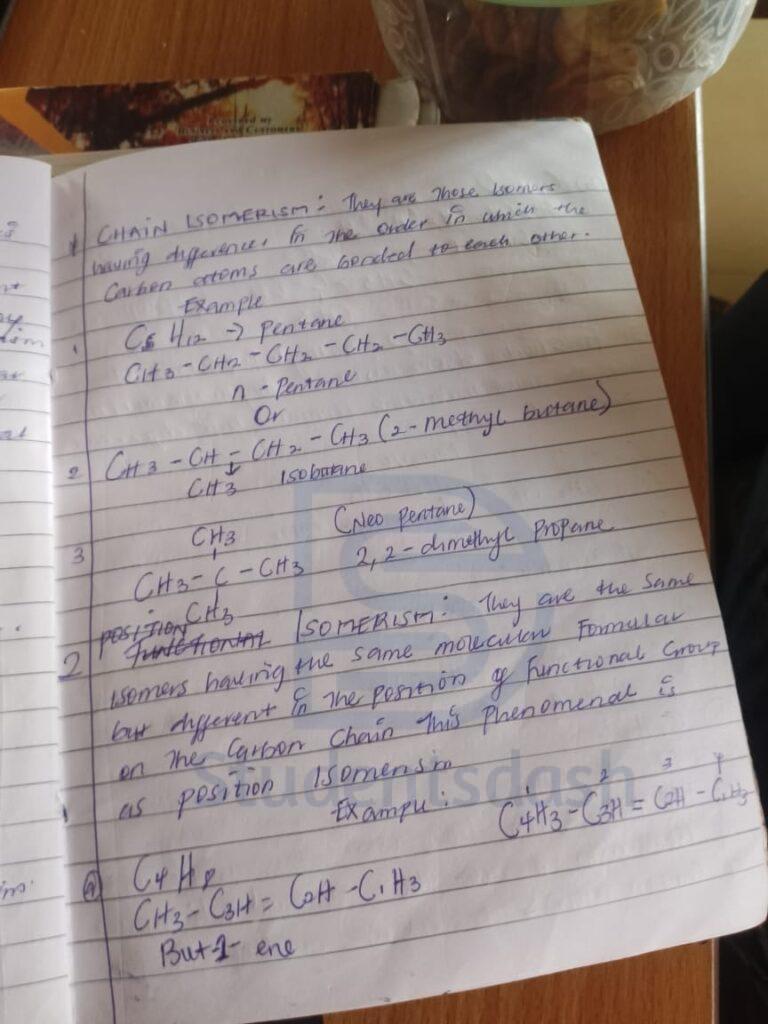 Provided by
1 CHAIN ISOMERISM: They are those Isomers
having differences in the order in which the
Carbon atoms are bonded to each other.
Example
1 C5 H12 → Pentane
CH3-CH2-CH2-CH2-CH3
n-Pentane
Or
2 CH3-CH-CH2-CH3 (2-methyl butane)
CH3 Isobutane
(Neo pentane)
CH3
3 CH3-C-CH3 2,2-dimethyl Propane
CH3
POSITION
2 FUNCTIONAL ISOMERISM: They are the same
isomers having the same molecular Formular
but different in the position of functional Group
on the Carbon Chain this Phenomenal is
as position Isomerism
Example:
1 2 3 4
C4H3-C3H=C2H-C1H3
a C4H8
CH3-C3H=C2H-C1H3
But-1-ene
Studentsdash